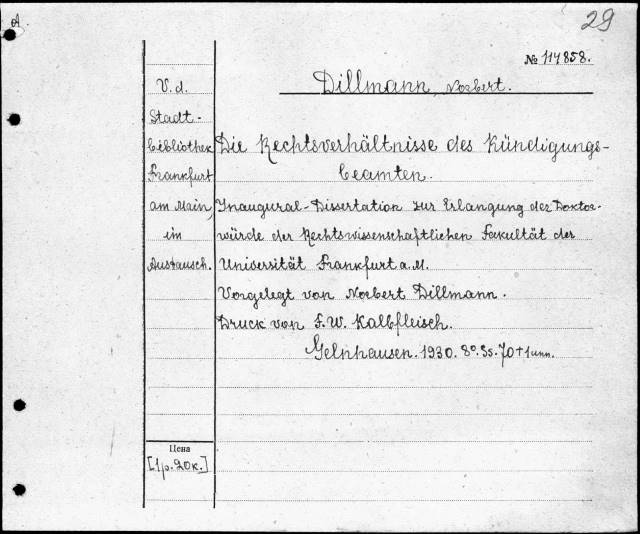 A
29
№ 114858.
Dillmann, Norbert.
V. d.
Stadt-
bibliothek
Frankfurt
am Main,
im
Austausch.
Die Rechtsverhältnisse des Kündigungs-
beamten.
Inaugural-Dissertation zur Erlangung der Doktor-
würde der Rechtswissenschaftlichen Fakultät der
Universität Frankfurt a. M.
Vorgelegt von Norbert Dillmann.
Druck von F. W. Kalbfleisch.
Gelnhausen. 1930. 8º. SS. 70 + 1 unn.
Цена
[1 р. 20 к.]